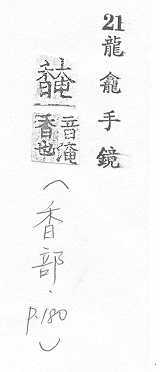 21龍龕手鏡
馣
音淹
香也
(香部.p.180)